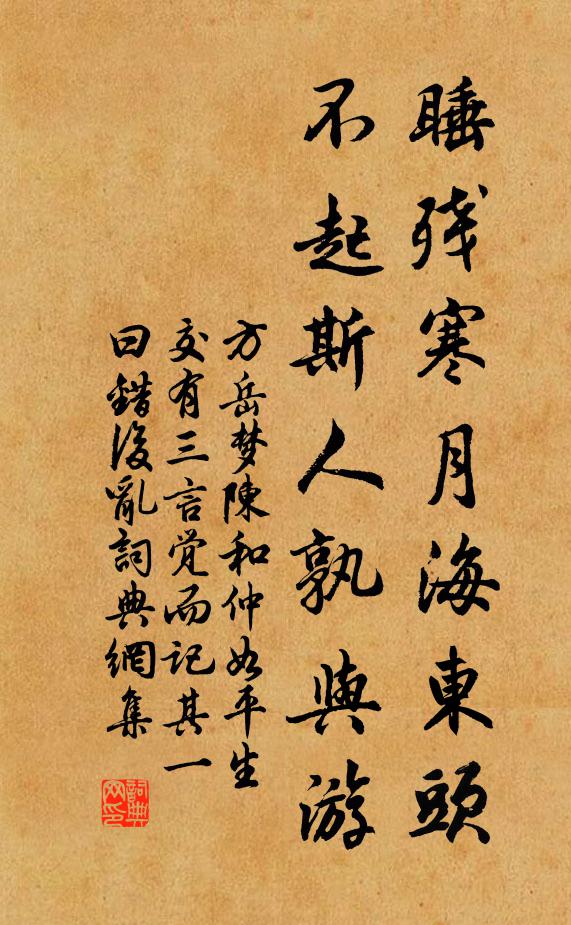 睡残寒月海東頭
不起斯人孰與游
方岳梦陳和仲如平生
交有三言觉而记其一
曰錯後亂詞典網集
詞典网印